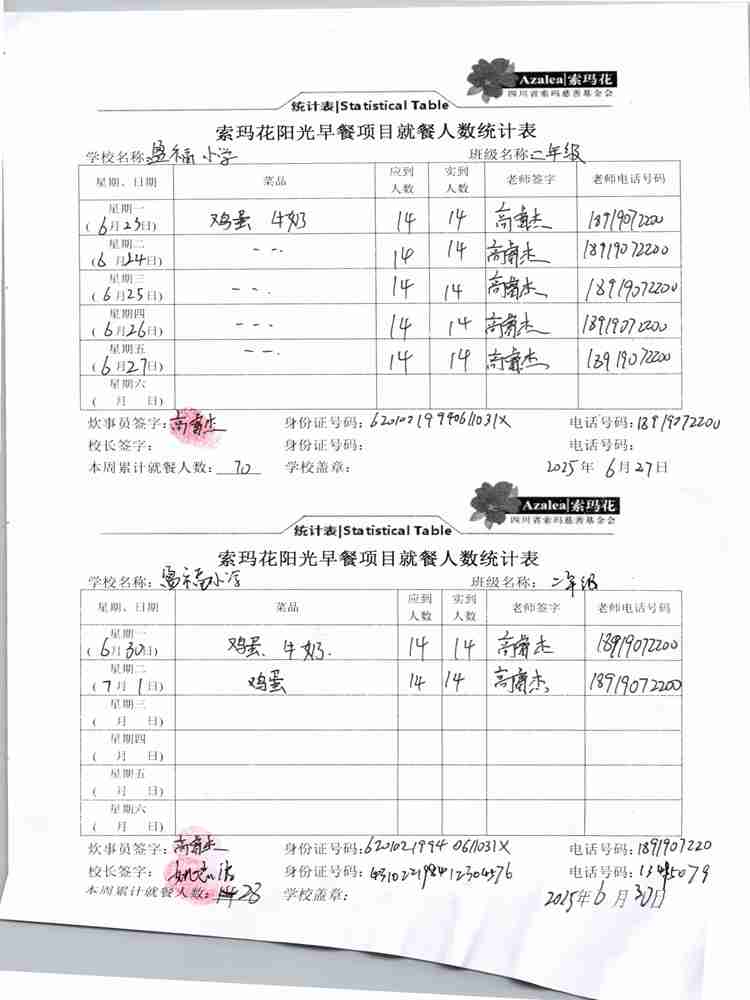 Azalea|索玛花
四川省索玛慈善基金会
统计表|Statistical Table
索玛花阳光早餐项目就餐人数统计表
学校名称:盈福小学 班级名称:二年级
星期、日期 菜品 应到人数 实到人数 老师签字 老师电话号码
星期一 (6月23日) 鸡蛋 牛奶 14 14 18919072200
星期二 (6月24日) -- 14 14 18919072200
星期三 (6月25日) --- 14 14 18919072200
星期四 (6月26日) --- 14 14 18919072200
星期五 (6月27日) --- 14 14 18919072200
星期六 ( 月 日)
炊事员签字: 身份证号码:62010219940611031X 电话号码:18919072200
校长签字: 身份证号码: 电话号码:
本周累计就餐人数: 70 学校盖章: 2025年6月27日
Azalea|索玛花
四川省索玛慈善基金会
统计表|Statistical Table
索玛花阳光早餐项目就餐人数统计表
学校名称:盈福小学 班级名称:二年级
星期、日期 菜品 应到人数 实到人数 老师签字 老师电话号码
星期一 (6月30日) 鸡蛋、牛奶. 14 14 18919072200
星期二 (7月1日) 鸡蛋 14 14 18919072200
星期三 ( 月 日)
星期四 ( 月 日)
星期五 ( 月 日)
星期六 ( 月 日)
炊事员签字: 身份证号码:62010219940611031X 电话号码:1891907220
校长签字: 身份证号码: 电话号码:
本周累计就餐人数: 28 学校盖章: 2025年6月30日